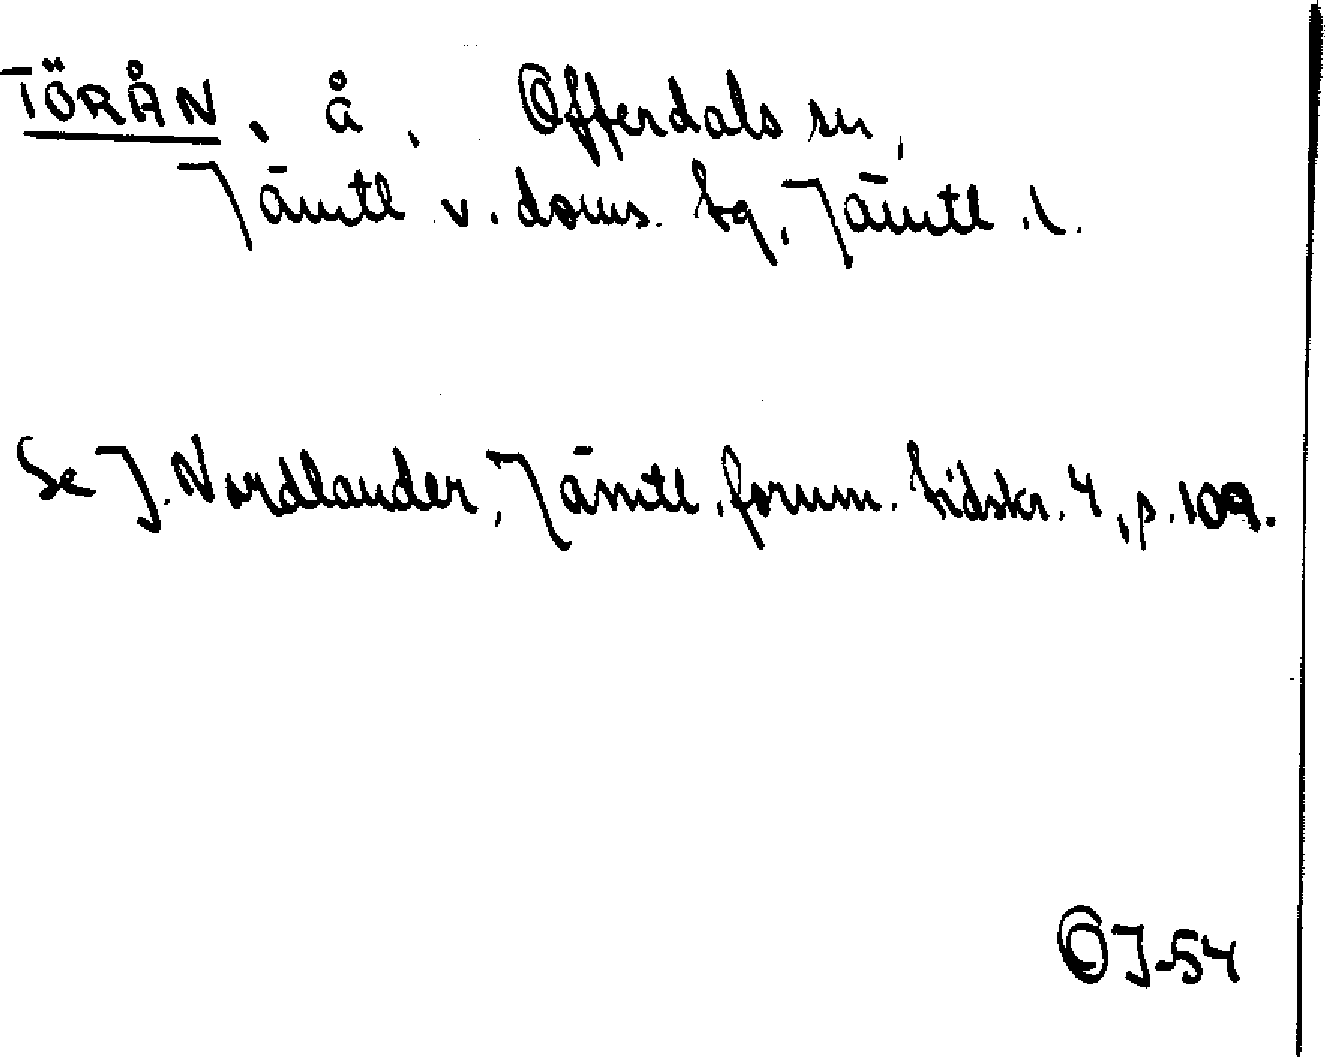 TÖRÅN, å, Offerdals sn,
Jämtl v. doms. tg, Jämtl. l.
Se J. Nordlander, Jämtl. fornm. tidskr. 4, p. 109.
OJ-54